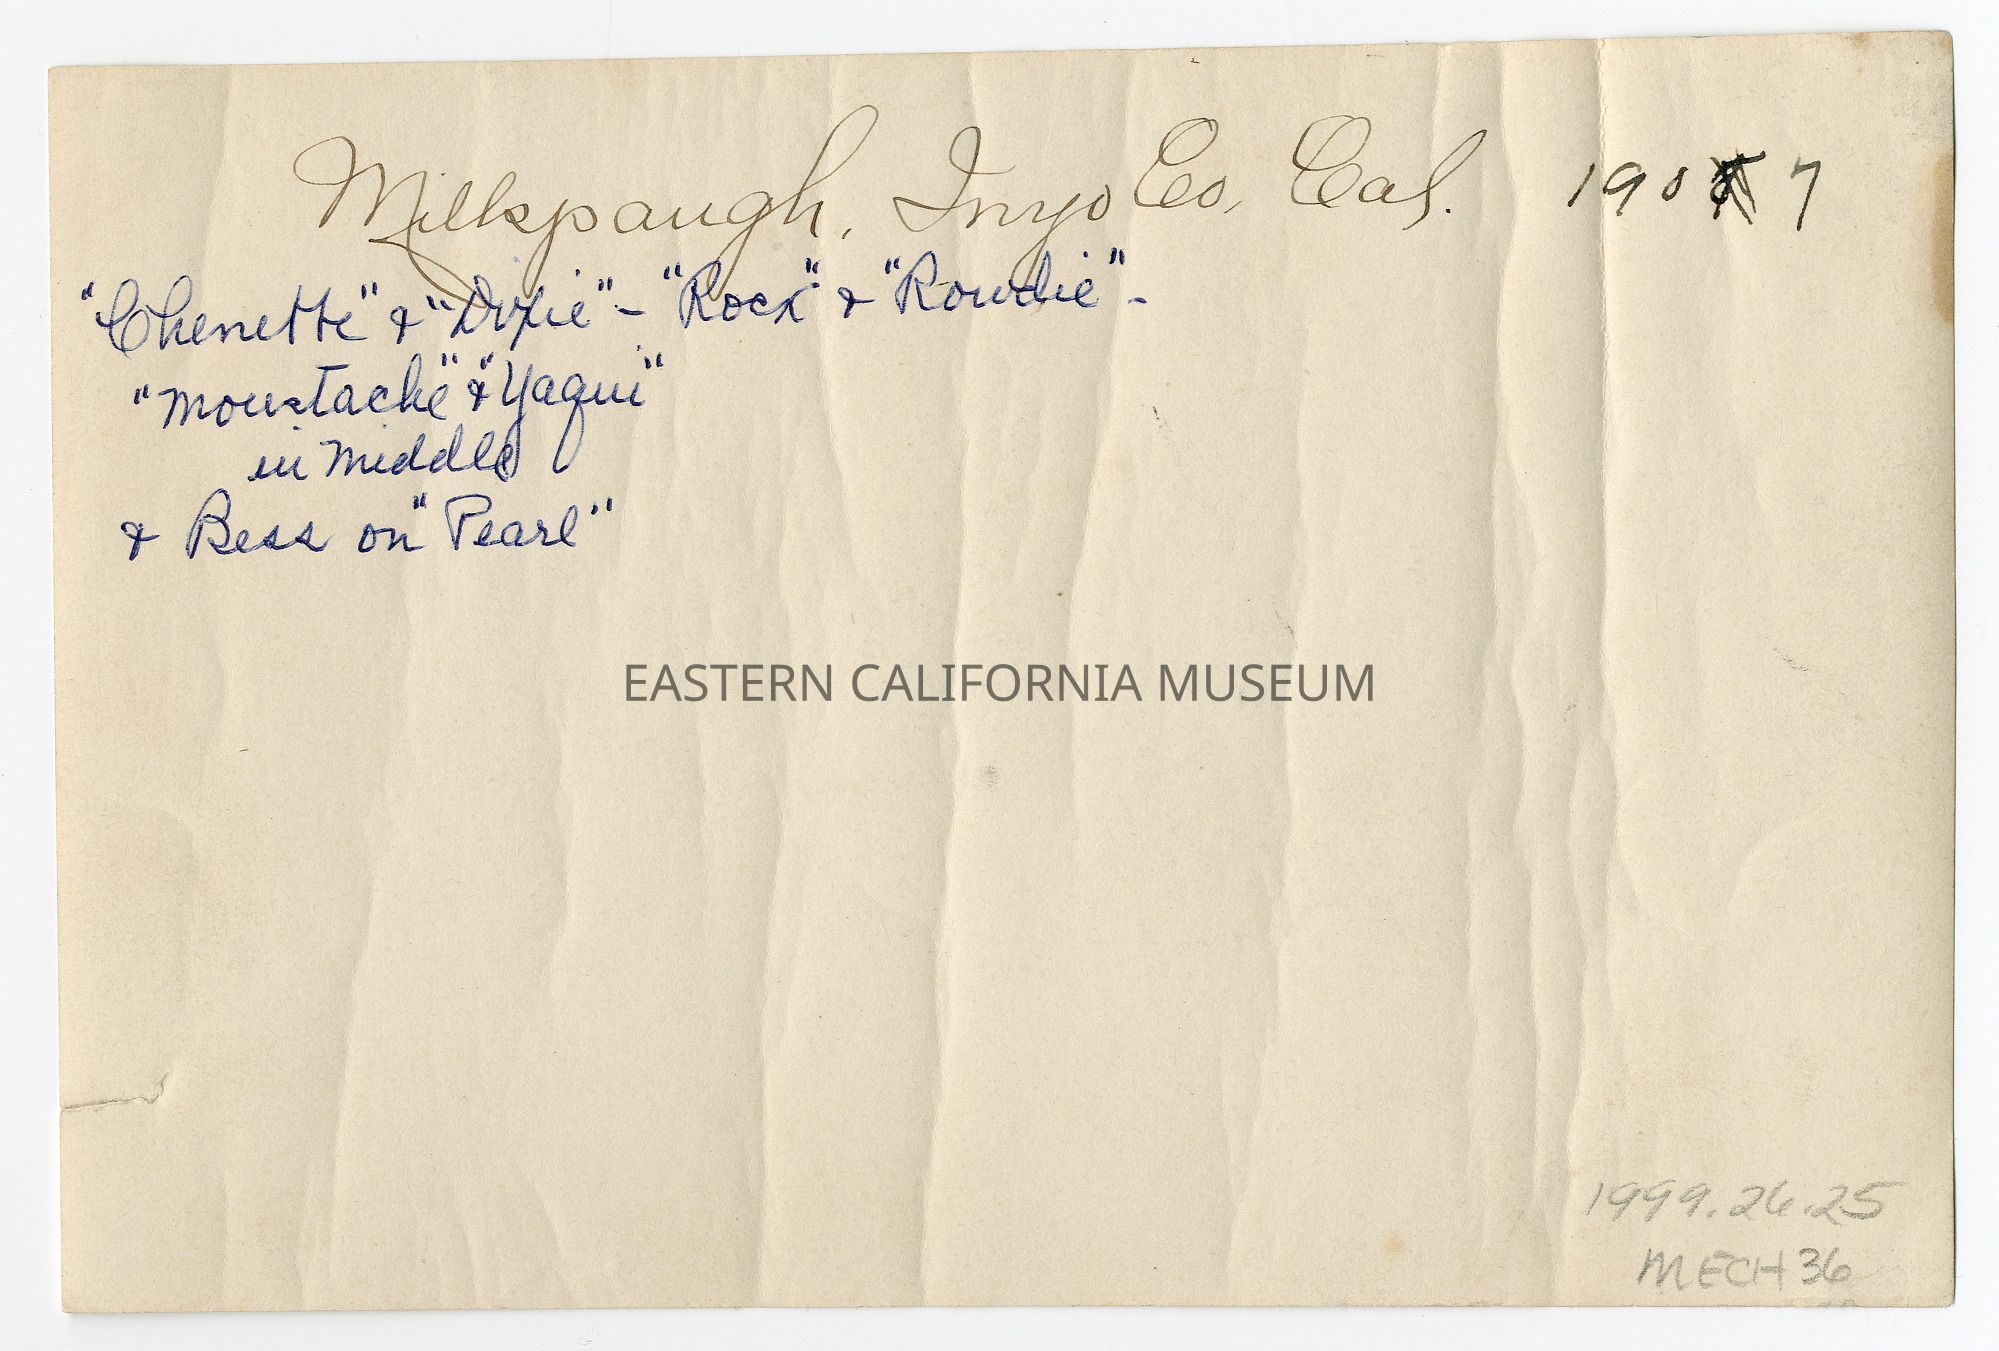 Milkspaugh, Inyo Co, Cal. 190 7
"Chenette" & "Dixie" - "Rock" & "Rowdie" -
"Moustache" & "Yaqui"
in middle
& Bess on "Pearl"
EASTERN CALIFORNIA MUSEUM
1999.26.25
MECH 36